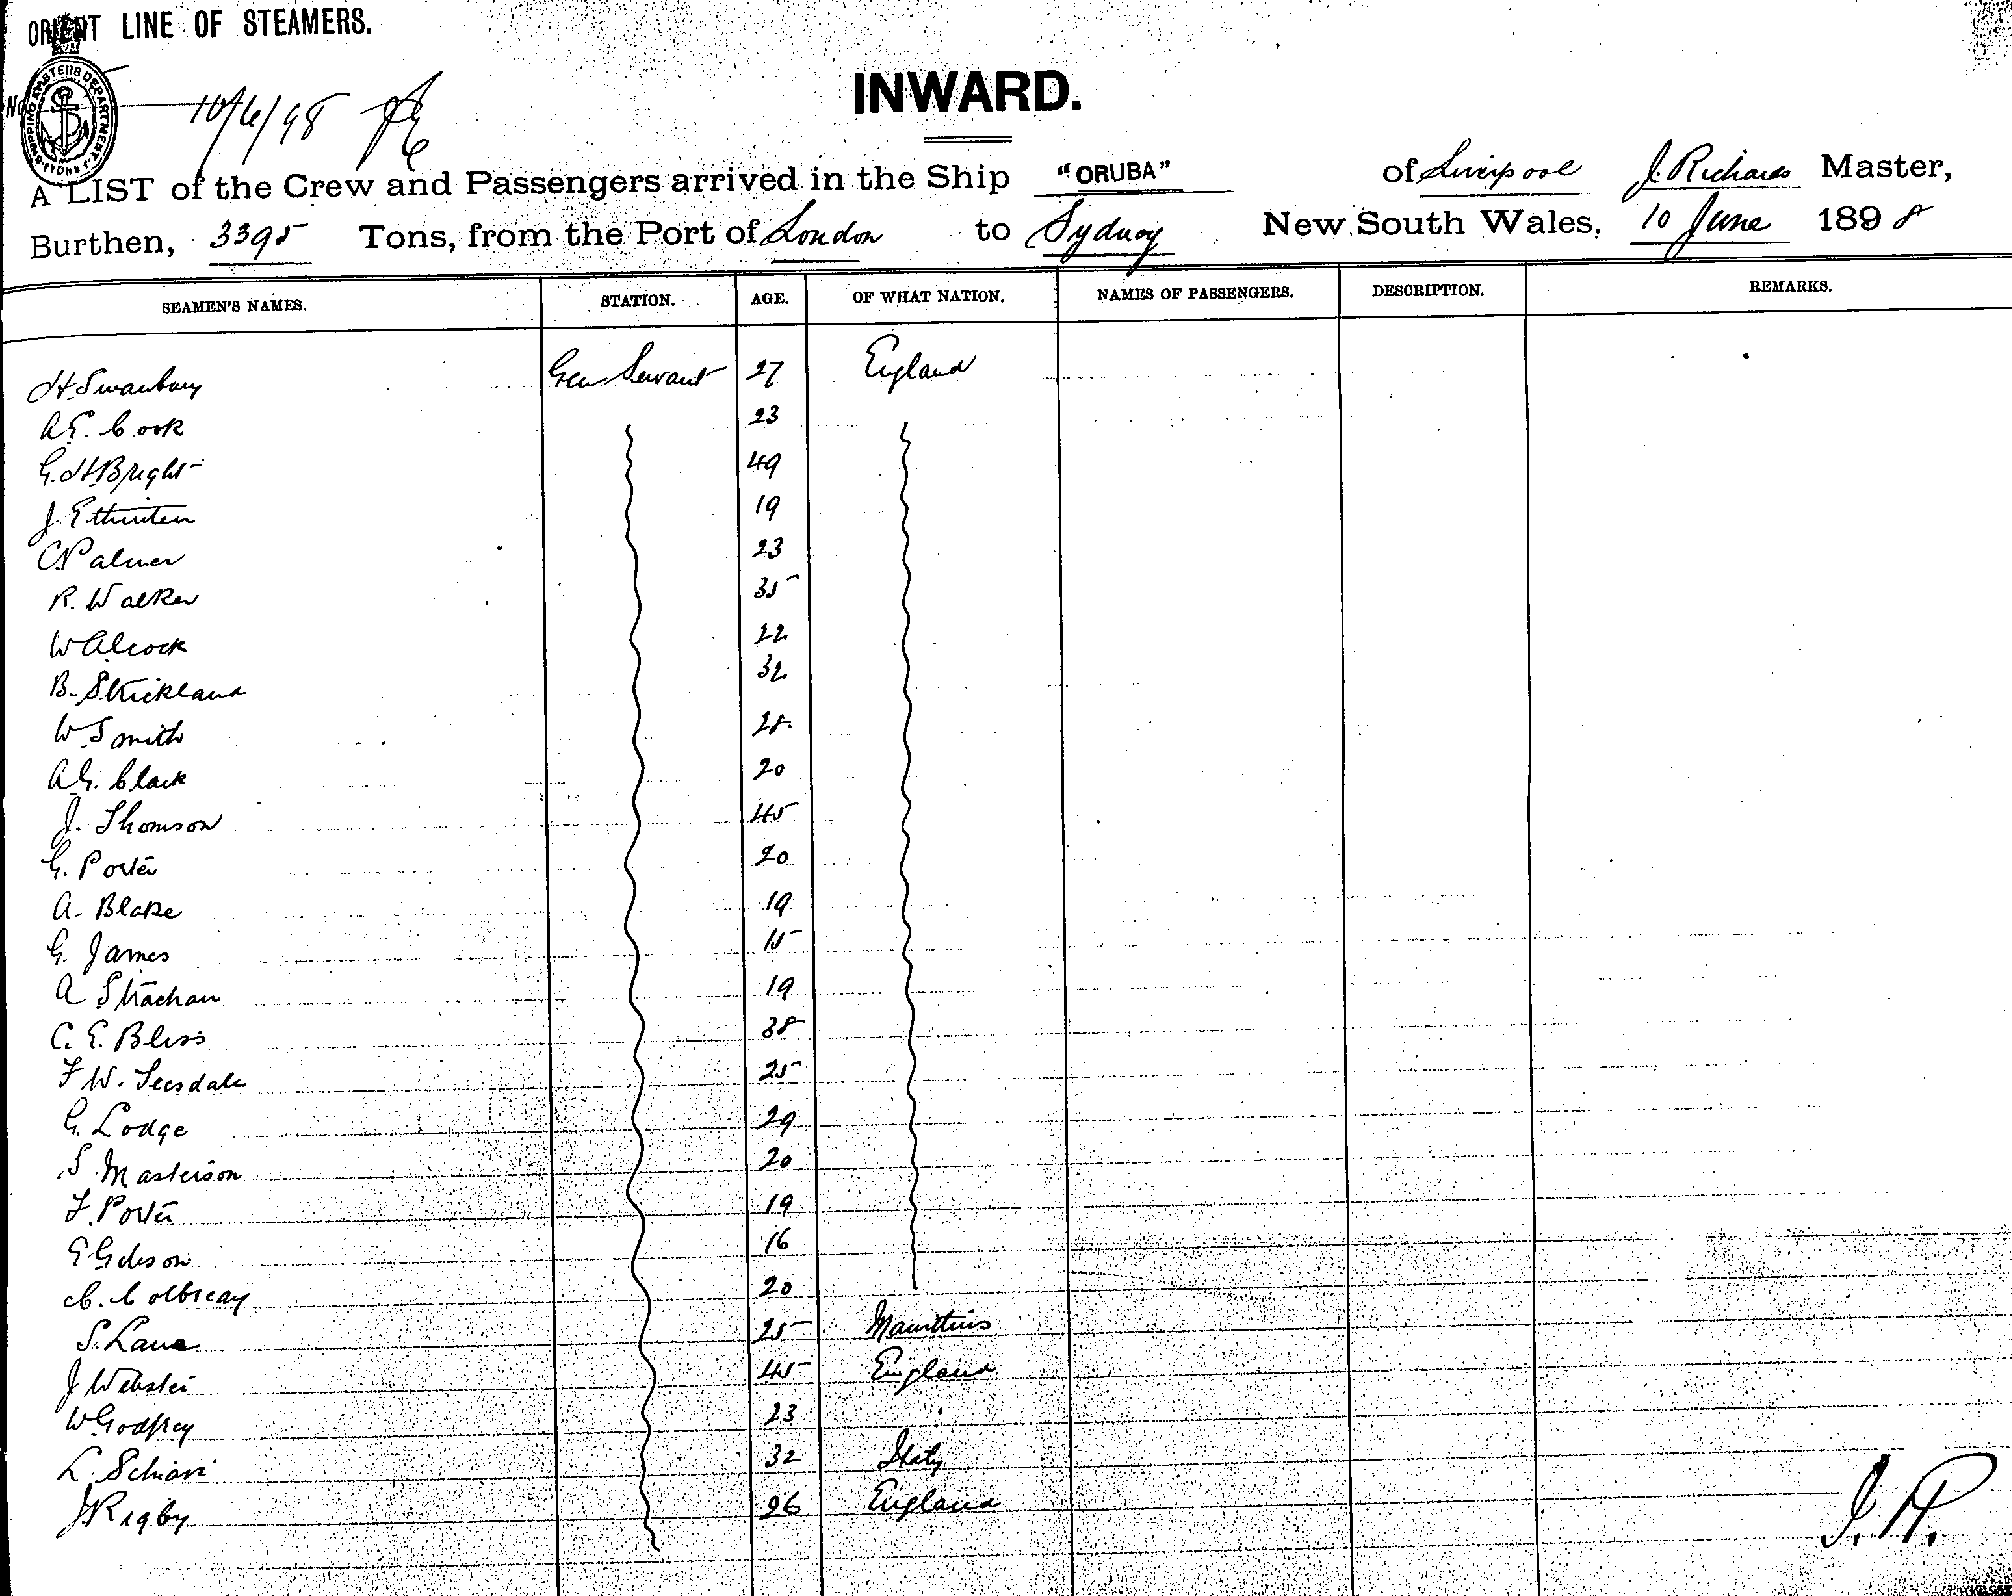 ORIENT LINE OF STEAMERS.
No
SHIPPING MASTERS DEPARTMENT SYDNEY
10/6/98
INWARD.
A LIST of the Crew and Passengers arrived in the Ship "ORUBA" of Liverpool J. Richards Master,
Burthen, 3395 Tons, from the Port of London to Sydney New South Wales, 10 June 1898
SEAMEN'S NAMES. STATION. AGE. OF WHAT NATION. NAMES OF PASSENGERS. DESCRIPTION. REMARKS.
H Swanbury Gen Servant 27 England
A.E. Cook 23
G. H Bright 49
J. 19
C Palmer 23
R. Walker 35
W Alcock 22
B. Strickland 32
W. Smith 28
A.G. Clark 20
J. Thomson 45
G. Porter 20
A. Blake 19
G. James 15
A Strachan 19
C. E. Bliss 38
F W. Teesdale 25
G. Lodge 29
S. Masterson 20
F. Porter 19
E Gibson 16
C. 20
S. Lane 25 Mauritius
J Webster 45 England
W Godfrey 23
L. Schiavi 32 Italy
J Rigby 26 England